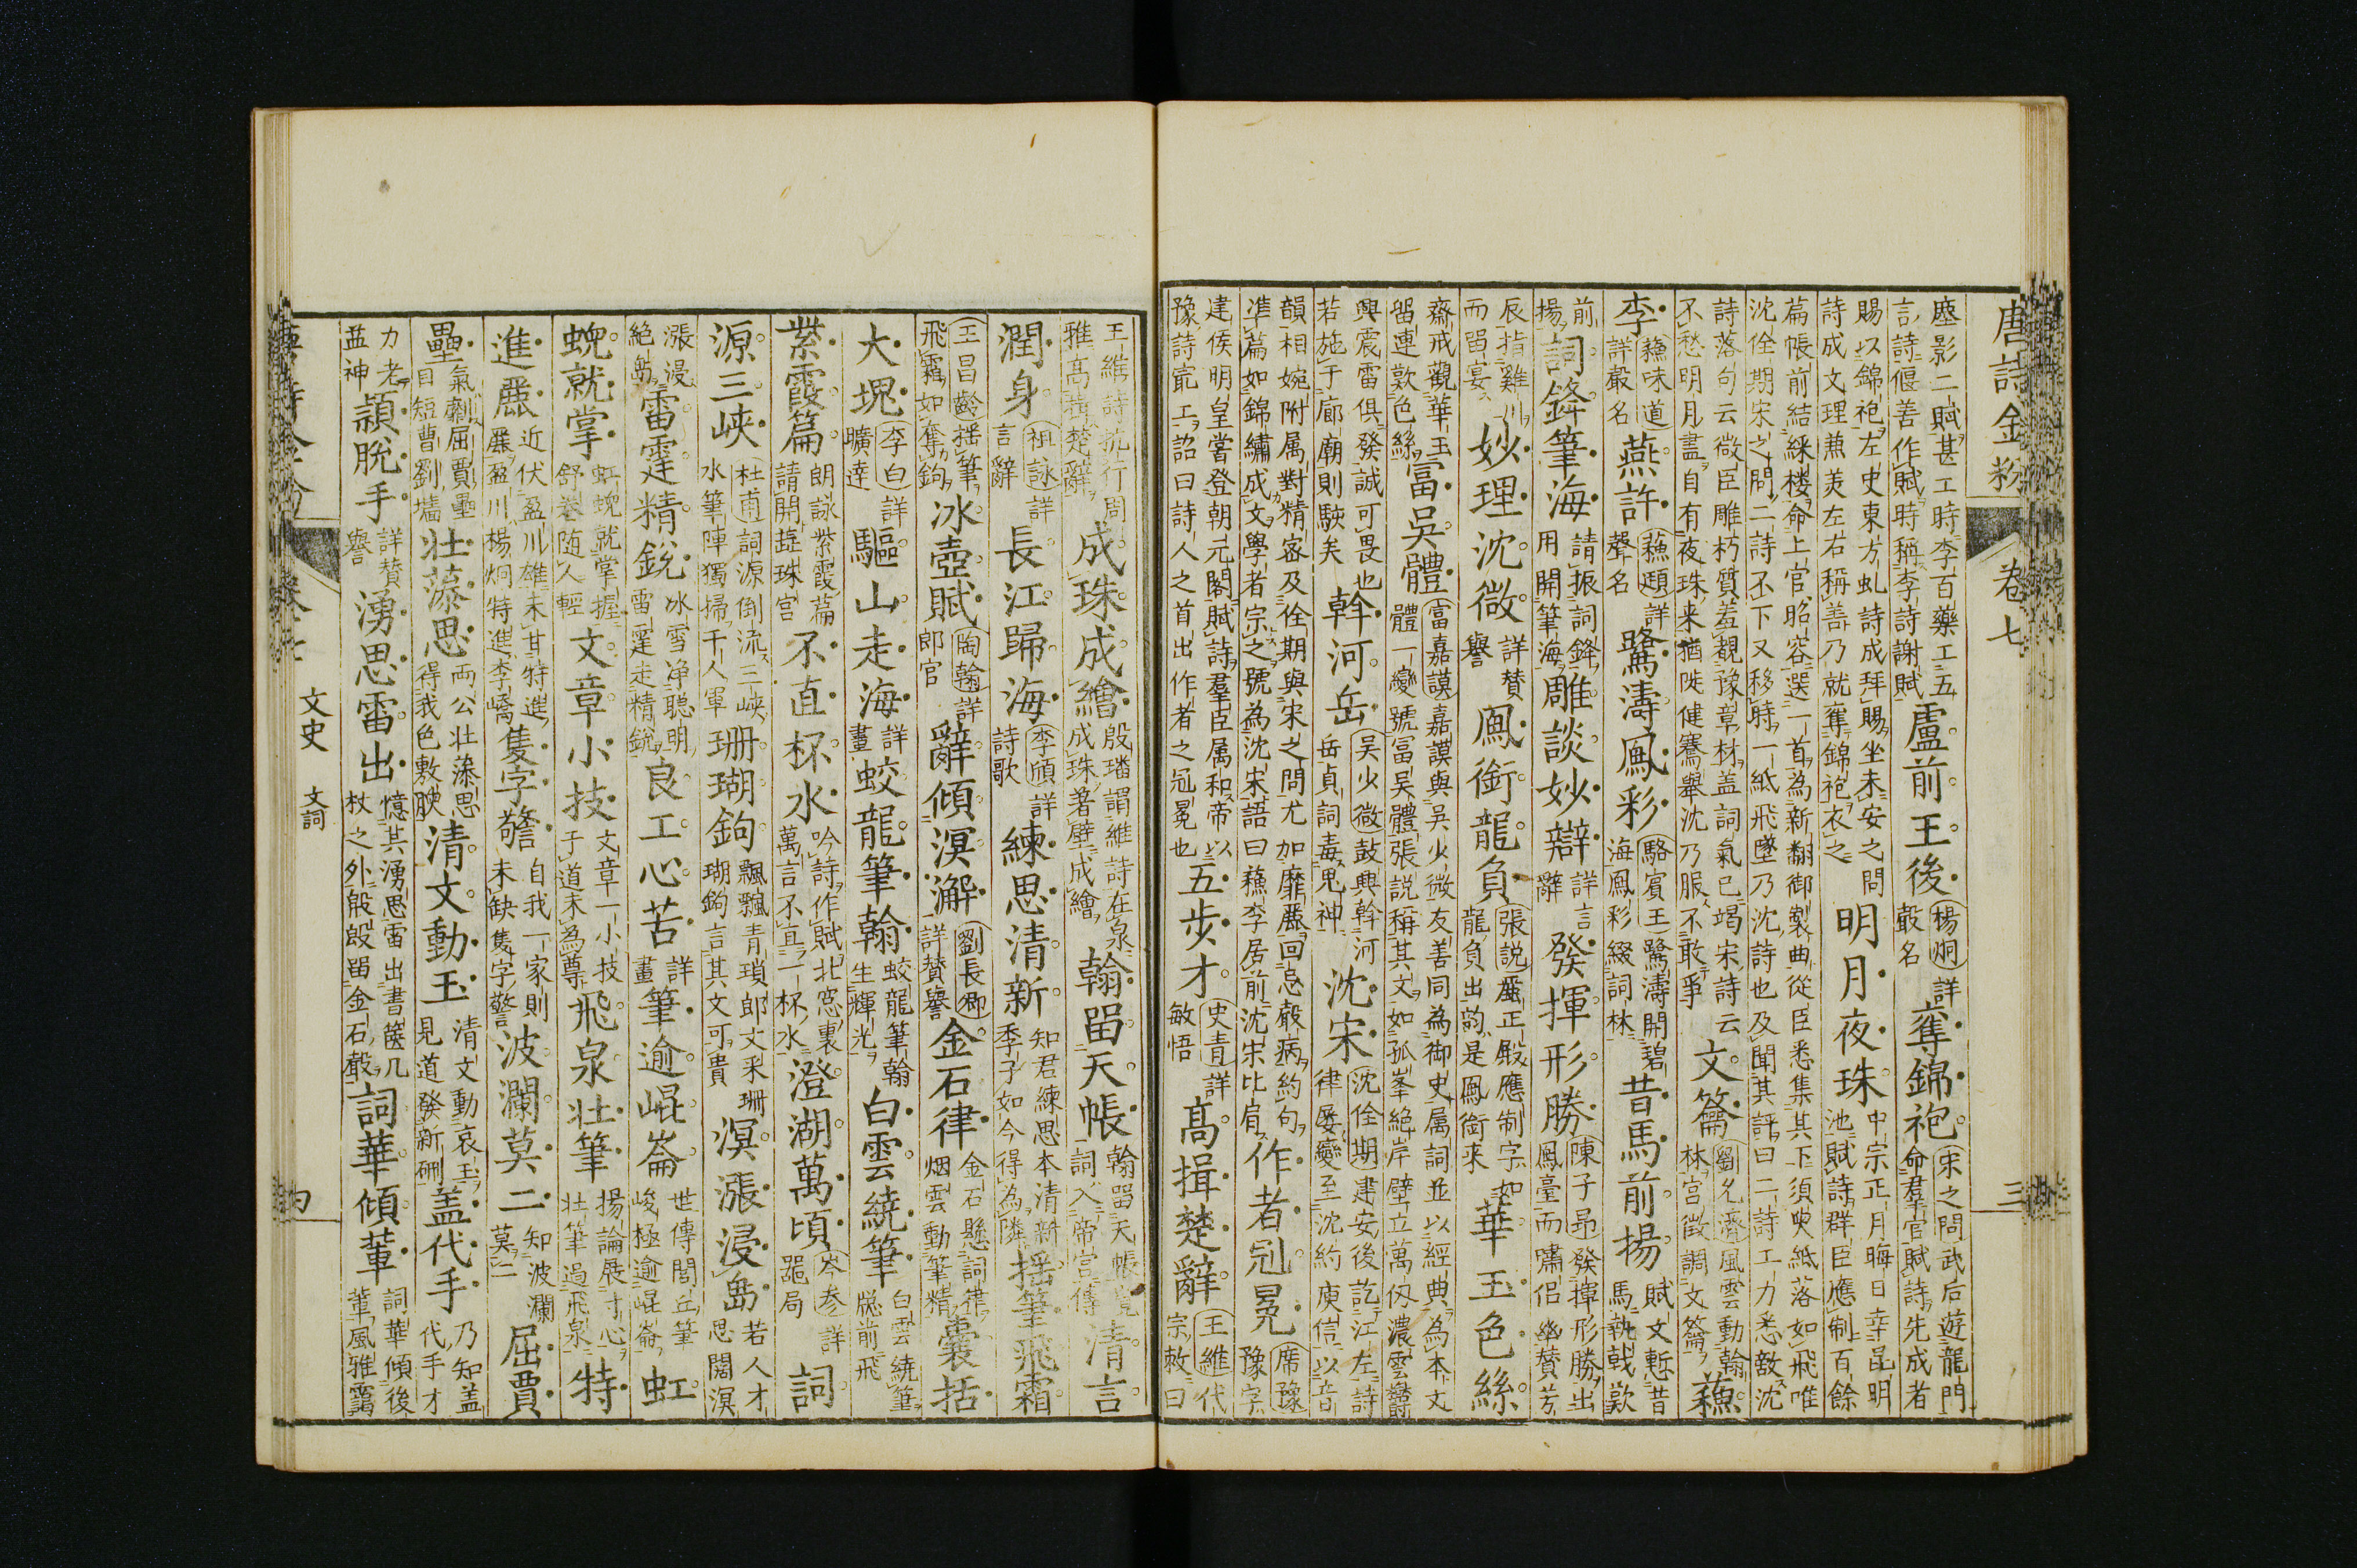 唐詩金粉　卷七　三
塵影二賦甚工時李百藥工五
言詩偃善作賦時稱李詩謝賦
盧前王後
楊炯詳
聲名
奪錦袍
宋之問武后遊龍門
命羣官賦詩先成者
賜以錦袍左史東方虬詩成拜賜坐未安之問
詩成文理兼美左右稱善乃就奪錦袍衣之
明月夜珠
中宗正月晦日幸昆明
池賦詩群臣應制百餘
篇帳前結綵楼命上官昭容選一首為新翻御製曲從臣悉集其下須臾紙落如飛唯
沈佺期宋之問二詩不下又移時一紙飛墜乃沈詩也及聞其評曰二詩工力悉敵沈
詩落句云微臣雕朽質羞覩豫章材盖詞氣已竭宋詩云
不愁明月盡自有夜珠来猶陡健騫舉沈乃服不敢爭
文籥
劉允濟風雲動翰
林宮徴調文籥
蘇
李
蘇味道
詳嚴名
燕許
蘇頲詳
聲名
鷟濤鳳彩
駱賓王鷟濤開碧
海鳳彩綴詞林
昔馬前揚
賦文慙昔
馬執戟歎
前
揚
詞鋒筆海
請振詞鋒
用開筆海
雕談妙辯
詳言
辭
發揮形勝
陳子昂發揮形勝出
鳳臺而嘯侶幽賛芳
辰指雞川
而畱宴
妙理沈微
詳賛
譽
鳳銜龍負
張説屬正殿應制字如
龍負出韵是鳳銜来
華玉色絲
齋戒觀華玉
畱連歎色絲
富吳體
富嘉謨嘉謨與吳少微友善同為御史属詞並以經典為本文
體一變號冨吴體張説稱其文如孤峯絕岸壁立萬仭濃雲欝
興震雷俱發誠可畏也
若施于廊廟則駛矣
斡河岳
吴少微鼓興斡河
岳貞詞毒鬼神
沈宋
沈佺期建安後訖江左詩
律屡變至沈約庾信以音
韻相婉附属對精密及佺期與宋之問尤加靡麗回忌聲病約句
凖篇如錦繡成文學者宗之號為沈宋語曰蘇李居前沈宋比肩
作者冠冕
席豫
豫宗
建侯明皇嘗登朝元閣賦詩羣臣属和帝以
豫詩㝡工詔曰詩人之首出作者之冠冕也
五步才
史青詳
敏悟
高揖楚辭
王維代
宗敕曰
王維詩抗行周
雅高揖楚辭
成珠成繪
殷璠謂維詩在泉
成珠着壁成繪
翰畱天帳
翰畱天帳覽
詞入帝宫傳
清言
潤身
祖詠詳
言辭
長江歸海
李頎詳
詩歌
練思清新
知君練思本清新
季子如今得為隣
揺筆飛霜
王昌齡揺筆
飛霜如奪鉤
冰壺賦
陶翰詳
郎官
辭傾溟澥
劉長卿
詳賛譽
金石律
金石懸詞律
烟雲動筆精
囊括
大塊
李白詳
曠達
驅山走海
詳
畫
蛟龍筆翰
蛟龍筆翰
生輝光
白雲繞筆
白雲繞筆
牕前飛
紫霞篇
朗詠紫霞篇
請開蕋珠宫
不直杯水
吟詩作賦北窓裏
萬言不直一杯水
澄湖萬頃
岑参詳
噐局
詞
源三峡
杜甫詞源倒流三峡
水筆陣獨掃千人軍
珊瑚鉤
飄飄青瑣郎文采珊
瑚鉤言其文可貴
溟漲浸島
若人才
思闊溟
漲浸
絶島
雷霆精銳
冰雪净聰明
雷霆走精銳
良工心苦
詳
畫
筆逾崐崙
世傳閭丘筆
峻極逾崐崙
虹
蜺就掌
虹蜺就掌握
舒卷随人輕
文章小技
文章一小技
于道未為尊
飛泉壮筆
揚論展寸心
壮筆過飛泉
特
進麗
近伏盈川雄未甘特進
麗盈川楊炯特進李嶠
隻字警
自我一家則
未缺隻字警
波瀾莫二
知波瀾
莫二
屈賈
壘
氣劘屈賈壘
目短曹劉墻
壮藻思
両公壮藻思
得我色敷腴
清文動玉
清文動哀玉
見道發新硎
盖代手
乃知盖
代手才
力老
益神
穎脫手
詳賛
譽
湧思雷出
憶其湧思雷出書篋几
杖之外殷殷畱金石聲
詞華傾輩
詞華傾後
輩風雅靄
卷七　文史　文詞　四